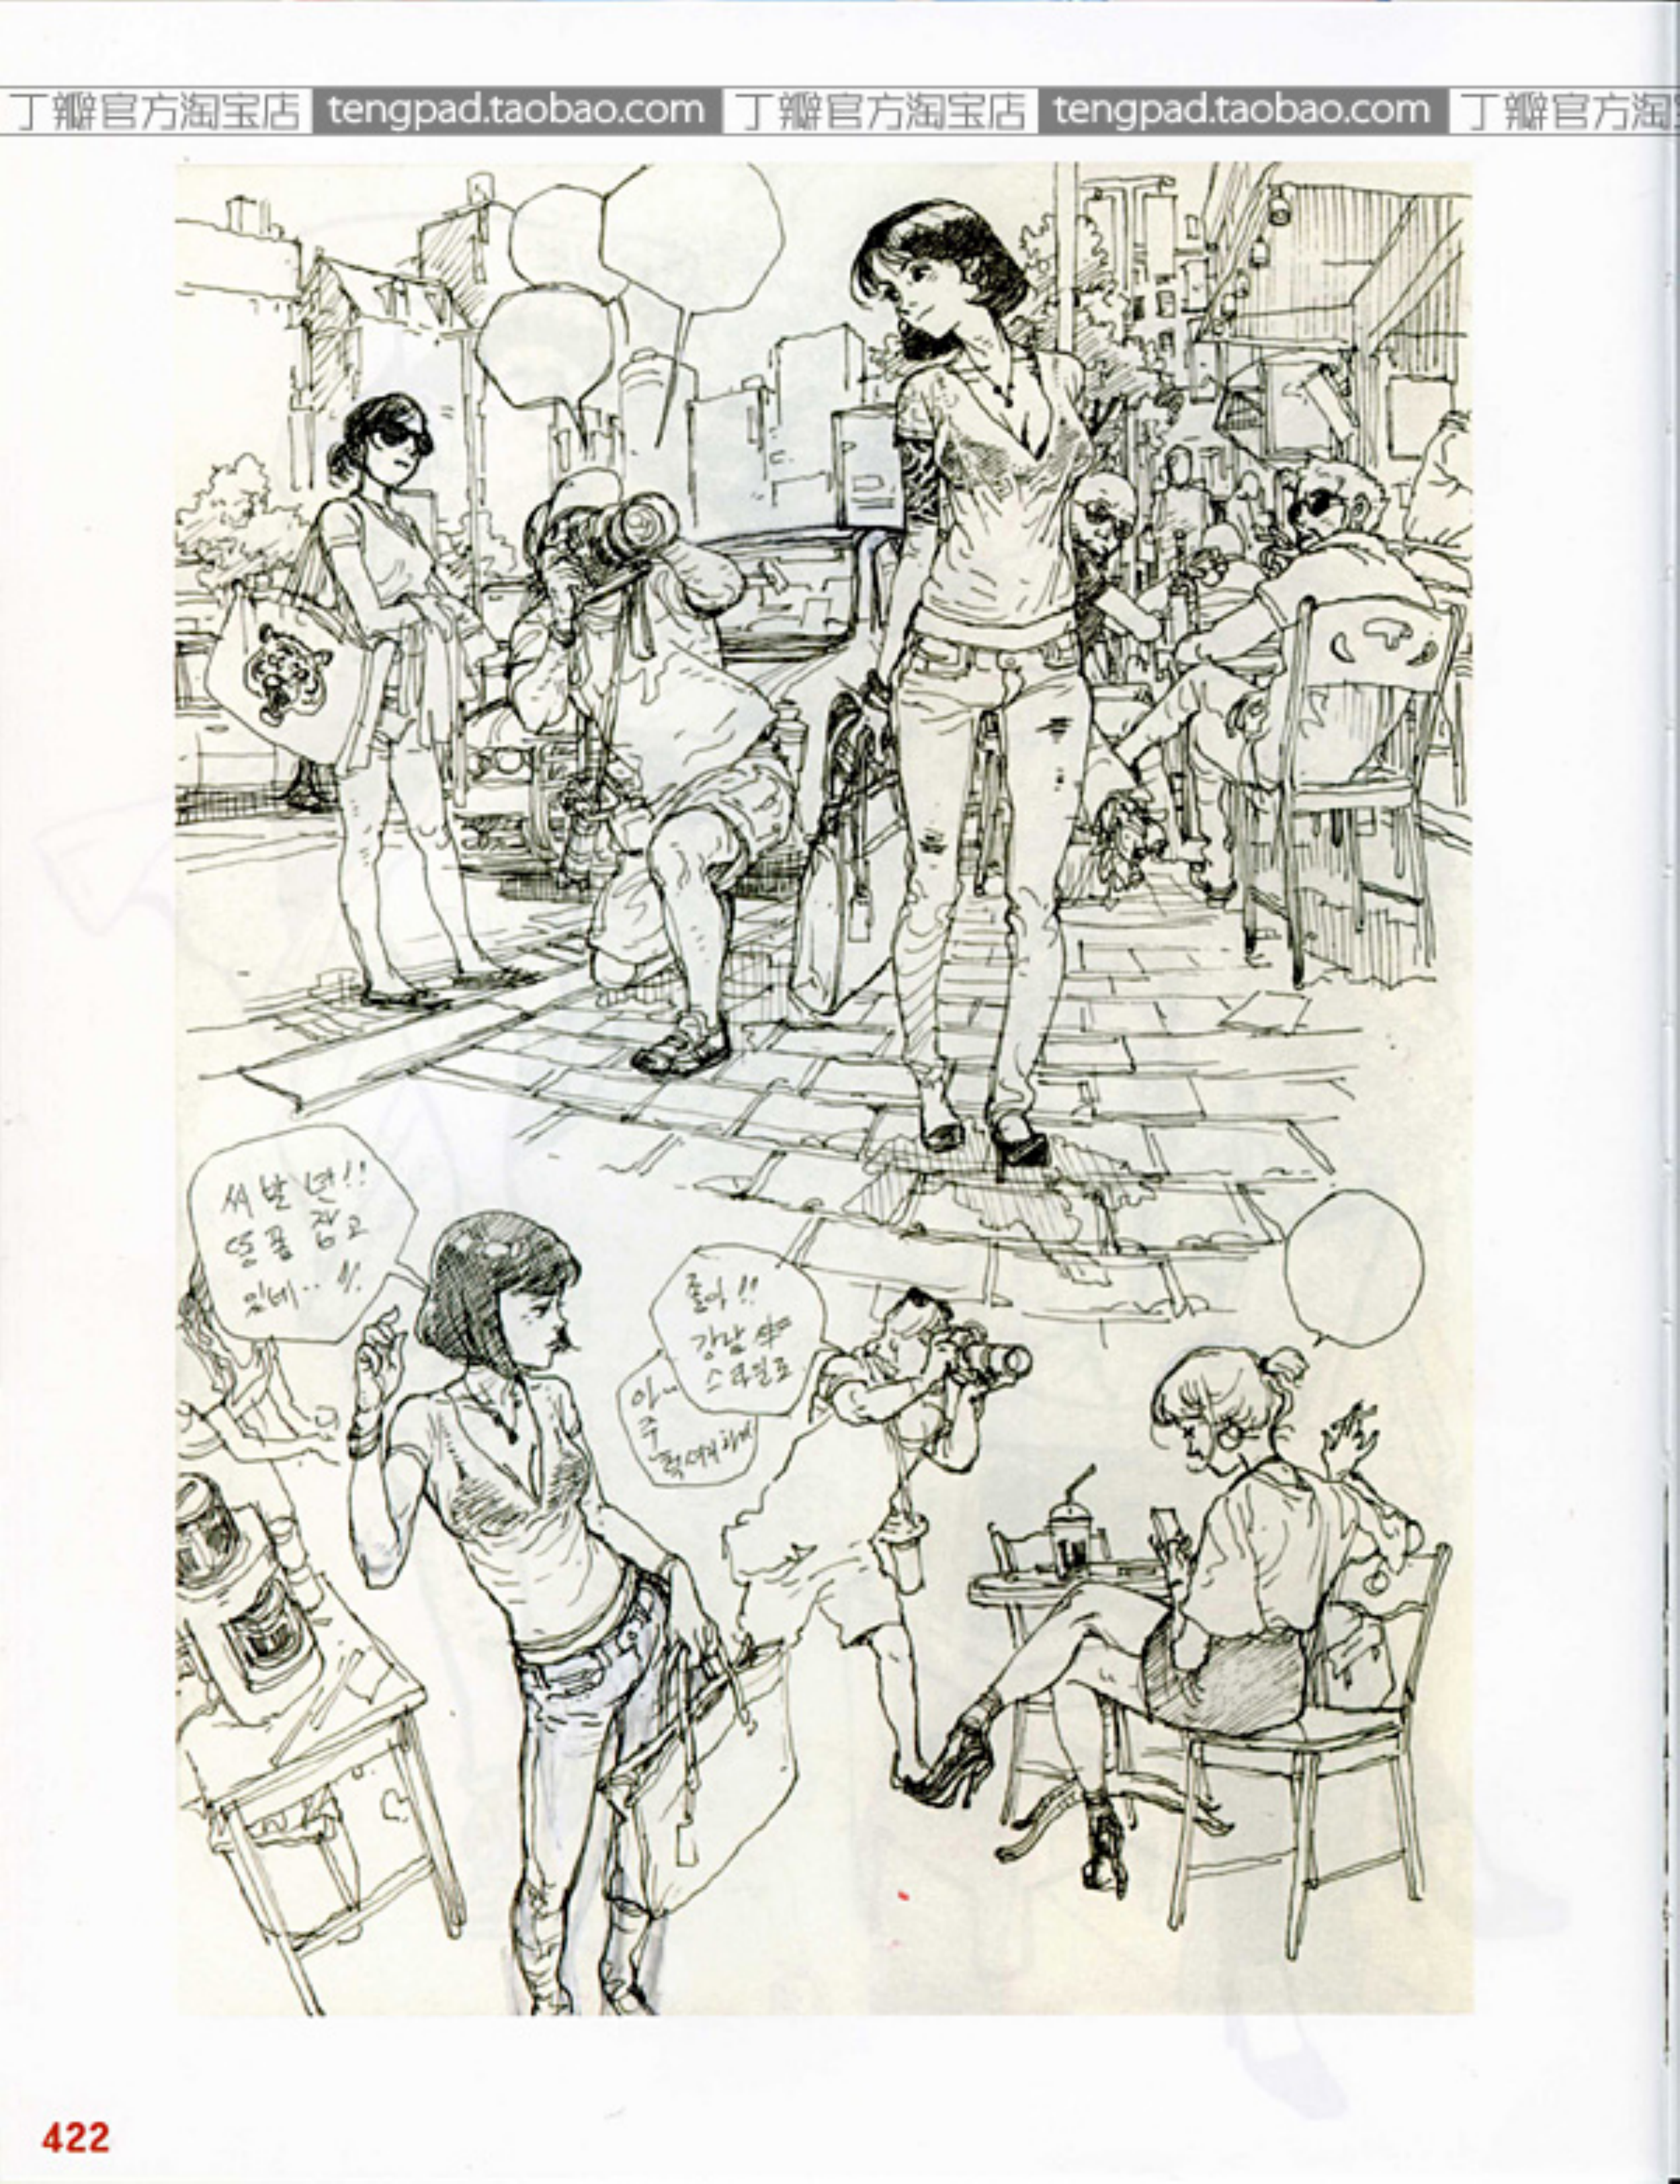 丁瓣官方淘宝店 tengpad.taobao.com 丁瓣官方淘宝店 tengpad.taobao.com 丁瓣官方淘
씨발년!!
똥폼잡고
있네..
좋아!!
강남
스타일로
아..
주
422